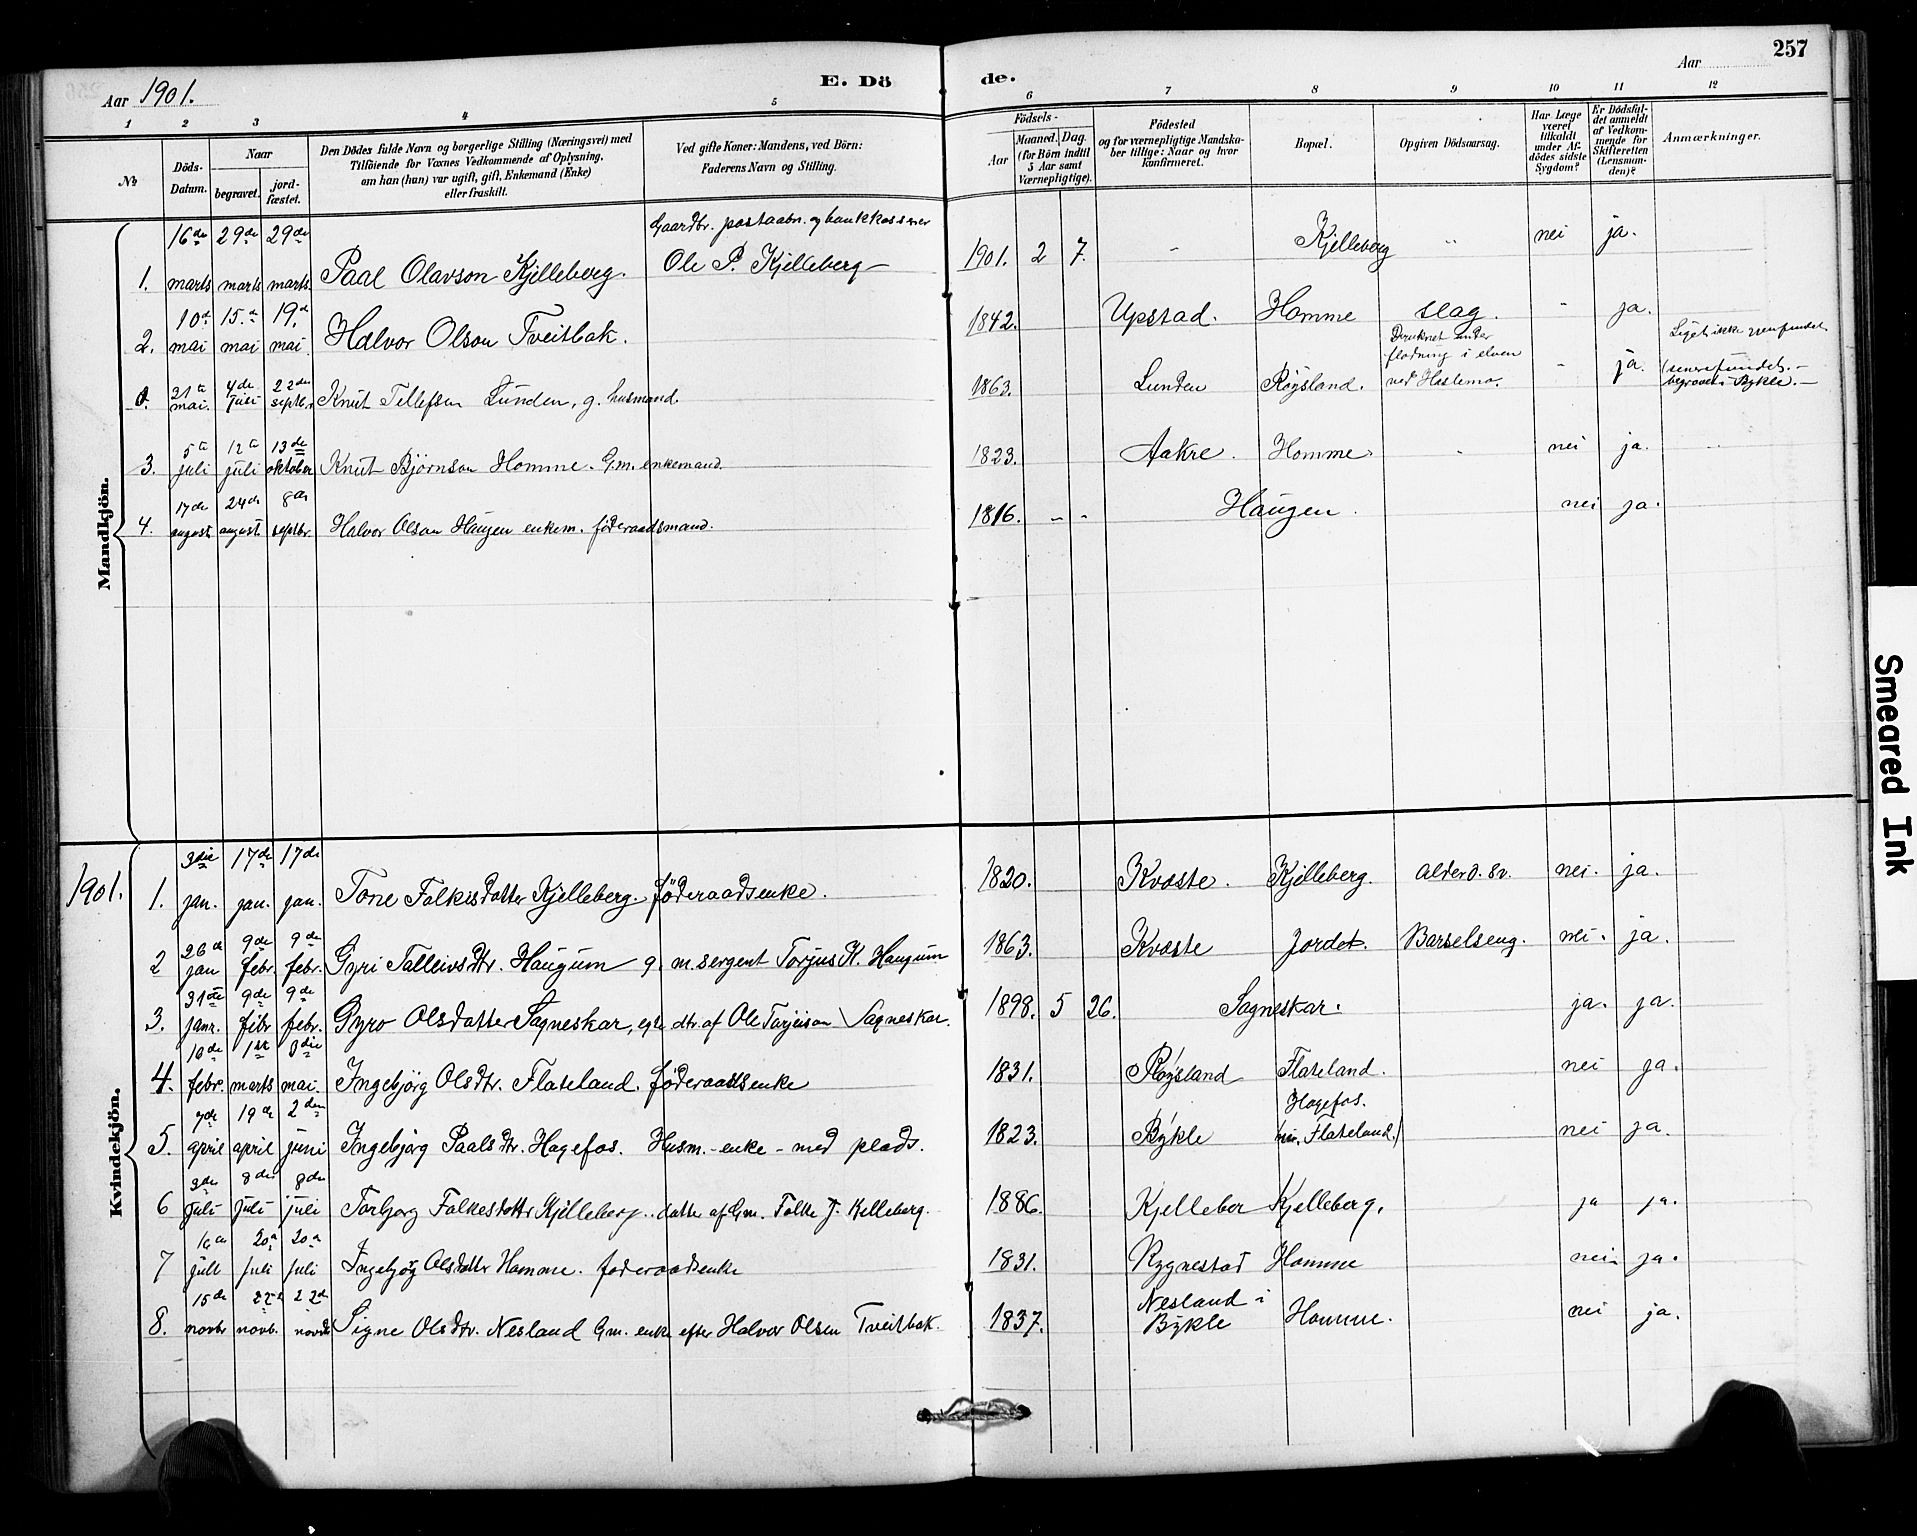 Aar 1901.
E. Dö de.
Aar 257
1 2 3 4 5 6 7 8 9 10 11 12
№
Döds-Datum.
Naar
begravet.
jordfæstet.
Den Dödes fulde Navn og borgerlige Stilling (Næringsvei) med
Tilföiende for Voxnes Vedkommende af Oplysning,
om han (hun) var ugift, gift, Enkemand (Enke)
eller fraskilt.
Ved gifte Koner: Mandens, ved Börn:
Faderens Navn og Stilling.
Födsels-
Aar
Maaned. Dag.
(for Börn indtil
5 Aar samt
Værnepligtige).
Födested
og for værnepligtige Mandska-
ber tillige: Naar og hvor
konfirmeret.
Bopæl.
Opgiven Dödsaarsag.
Har Læge
været
tilkaldt
under Af-
dödes sidste
Sygdom?
Er Dödsfal-
det anmeldt
af Vedkom-
mende for
Skifteretten
(Lensman-
den)?
Anmærkninger.
Mandkjön.
Gaardbr. postaabn. og bankkasserer
1. 16de marts 29de marts 29de marts. Paal Olavson Kjelleberg. Ole P. Kjelleberg 1901. 2 7. - Kjelleberg " nei ja.
2. 10d. mai 15.d mai 19.d mai. Halvor Olson Tveitbak. 1842. Upstad. Homme slag. " ja.
0. 31te mai. 4de juli 22de septbr. Knut Tellefsen Lunden, g. husmand. 1863. Lunden Røysland. Druknet under
flødning i elven
ved Heslemo. - ja. Liget ikke gjenfundet.
(senere fundet. -
begravet i Bykle. -
3. 5te juli 12te juli 13de oktober Knut Bjørnson Homme. Gm. enkemand. 1823. Aakre. Homme. nei ja.
4. 17de august 24de august 8de septbr. Halvor Olson Haugen enkem. føderaadsmand. 1816. - - Haugen. nei ja.
Kvindekjön.
1901.
1. 3die jan. 17de jan. 17de jan. Tone Folkesdatter Kjelleberg. føderaadsenke. 1820. Kvaste. Kjelleberg. Alderd. sv. nei. ja.
2 26de jan 9de febr. 9de febr. Gyri Talleivsdtr. Haugum g. m. sergent Torjus K. Haugum 1863. Kvaste Jordet. Barselseng. nei. ja.
3. 31te janr. 9de febr 9de febr. Gyro Olsdatter Sagneskar, egte dtr. af Ole Torjeison Sagneskar. 1898. 5 26. Sagneskar. ja. ja.
4. 10de febr. 1ste marts 3die mai. Ingebjörg Olsdtr. Flateland. føderaadsenke 1831. Røysland Flateland. nei ja.
5. 7de april 19de april 2den juni Ingebjørg Paalsdtr. Hagefos. Husm.-enke - med plads. 1823. Bykle Hagefos.
Flateland.) nei ja.
6 3de juli 8de juli 8de juli Torbjorg Folkesdatter Kjelleberg. datter af Gm. Folke J. Kelleberg. 1886. Kjelleber Kjelleberg. ja ja.
7 juli 20de juli 20de juli Ingebjörg Olsdatter Homme. føderaadsenke 1831. Rygnestad Homme nei. ja.
8. 15de novbr 22de novb. 22de novbr Signe Olsdtr. Nesland Gm. enke efter Halvor Olsen Tveitbak. 1837. Nesland i
Bykle Homme. nei ja.
Smeared Ink